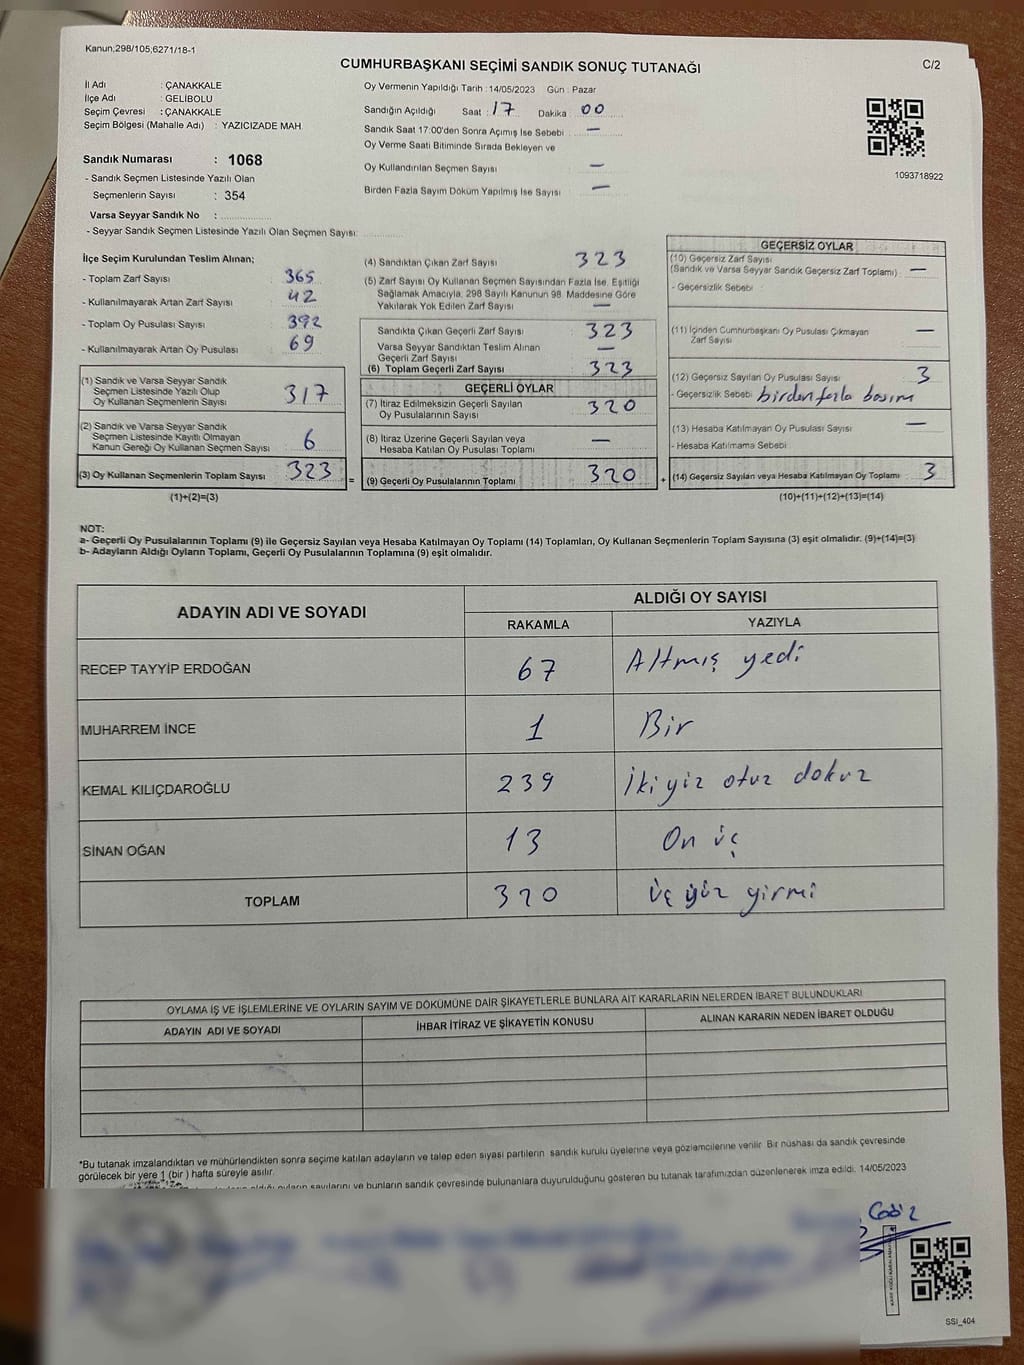 Kanun,298/105,6271/18-1
CUMHURBAŞKANI SEÇİMİ SANDIK SONUÇ TUTANAĞI
C/2
İl Adı : ÇANAKKALE
İlçe Adı : GELİBOLU
Seçim Çevresi : ÇANAKKALE
Seçim Bölgesi (Mahalle Adı) : YAZICIZADE MAH.
Sandık Numarası : 1068
- Sandık Seçmen Listesinde Yazılı Olan
Seçmenlerin Sayısı : 354
Varsa Seyyar Sandık No :
- Seyyar Sandık Seçmen Listesinde Yazılı Olan Seçmen Sayısı:
Oy Vermenin Yapıldığı Tarih :14/05/2023 Gün : Pazar
Sandığın Açıldığı Saat : 17 Dakika : 00
Sandık Saat 17:00'den Sonra Açımış Ise Sebebi : —
Oy Verme Saati Bitiminde Sırada Bekleyen ve
Oy Kullandırılan Seçmen Sayısı —
Birden Fazla Sayım Döküm Yapılmış Ise Sayısı —
1093718922
İlçe Seçim Kurulundan Teslim Alınan;
- Toplam Zarf Sayısı 365
- Kullanılmayarak Artan Zarf Sayısı 42
- Toplam Oy Pusulası Sayısı 392
- Kullanılmayarak Artan Oy Pusulası 69
(1) Sandık ve Varsa Seyyar Sandık
Seçmen Listesinde Yazılı Olup
Oy Kullanan Seçmenlerin Sayısı 317
(2) Sandık ve Varsa Seyyar Sandık
Seçmen Listesinde Kayıtlı Olmayan
Kanun Gereği Oy Kullanan Seçmen Sayısı 6
(3) Oy Kullanan Seçmenlerin Toplam Sayısı 323 =
(1)+(2)=(3)
(4) Sandıktan Çıkan Zarf Sayısı 323
(5) Zarf Sayısı Oy Kullanan Seçmen Sayısından Fazla Ise, Eşitliği
Sağlamak Amacıyla, 298 Sayılı Kanunun 98. Maddesine Göre
Yakılarak Yok Edilen Zarf Sayısı —
Sandıkta Çıkan Geçerli Zarf Sayısı 323
Varsa Seyyar Sandıktan Teslim Alınan
Geçerli Zarf Sayısı —
(6) Toplam Geçerli Zarf Sayısı 323
GEÇERLİ OYLAR
(7) İtiraz Edilmeksizin Geçerli Sayılan
Oy Pusulalarının Sayısı 320
(8) İtiraz Üzerine Geçerli Sayılan veya
Hesaba Katılan Oy Pusulası Toplamı —
(9) Geçerli Oy Pusulalarının Toplamı 320 +
GEÇERSİZ OYLAR
(10) Geçersiz Zarf Sayısı
(Sandık ve Varsa Seyyar Sandık Geçersiz Zarf Toplamı) —
- Geçersizlik Sebebi :
(11) İçinden Cumhurbaşkanı Oy Pusulası Çıkmayan
Zarf Sayısı —
(12) Geçersiz Sayılan Oy Pusulası Sayısı 3
- Geçersizlik Sebebi birden fazla basım
(13) Hesaba Katılmayan Oy Pusulası Sayısı —
- Hesaba Katılmama Sebebi
(14) Geçersiz Sayılan veya Hesaba Katılmayan Oy Toplamı 3
(10)+(11)+(12)+(13)=(14)
NOT:
a- Geçerli Oy Pusulalarının Toplamı (9) ile Geçersiz Sayılan veya Hesaba Katılmayan Oy Toplamı (14) Toplamları, Oy Kullanan Seçmenlerin Toplam Sayısına (3) eşit olmalıdır. (9)+(14)=(3)
b- Adayların Aldığı Oyların Toplamı, Geçerli Oy Pusulalarının Toplamına (9) eşit olmalıdır.
ADAYIN ADI VE SOYADI
ALDIĞI OY SAYISI
RAKAMLA YAZIYLA
RECEP TAYYİP ERDOĞAN 67 Altmış yedi
MUHARREM İNCE 1 Bir
KEMAL KILIÇDAROĞLU 239 İkiyüz otuz dokuz
SİNAN OĞAN 13 On üç
TOPLAM 320 üç yüz yirmi
OYLAMA İŞ VE İŞLEMLERİNE VE OYLARIN SAYIM VE DÖKÜMÜNE DAİR ŞİKAYETLERLE BUNLARA AİT KARARLARIN NELERDEN İBARET BULUNDUKLARI
ADAYIN ADI VE SOYADI İHBAR İTİRAZ VE ŞİKAYETİN KONUSU ALINAN KARARIN NEDEN İBARET OLDUĞU
*Bu tutanak imzalandıktan ve mühürlendikten sonra seçime katılan adayların ve talep eden siyasi partilerin sandık kurulu üyelerine veya gözlemcilerine verilir. Bir nüshası da sandık çevresinde
görülecek bir yere 1 (bir ) hafta süreyle asılır.
aldığı oyların sayılarını ve bunların sandık çevresinde bulunanlara duyurulduğunu gösteren bu tutanak tarafımızdan düzenlenerek imza edildi. 14/05/2023
SSI_404